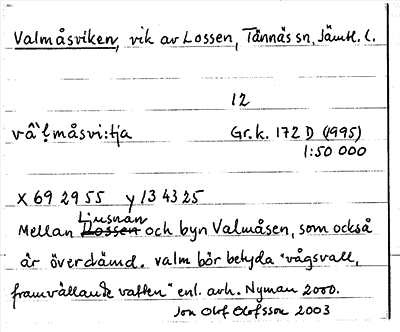 Valmåsviken, vik av Lossen, Tännäs sn, Jämtl. l.
12
vâ`ḷmåsvi:tja Gr.k. 172 D (1995)
1:50 000
x 69 29 55 y 13 43 25
Ljusnan
Mellan Lossen och byn Valmåsen, som också
är överdämd. valm bör betyda "vågsvall,
framvällande vatten" enl. avh. Nyman 2000.
Jon Olof Olofsson 2003